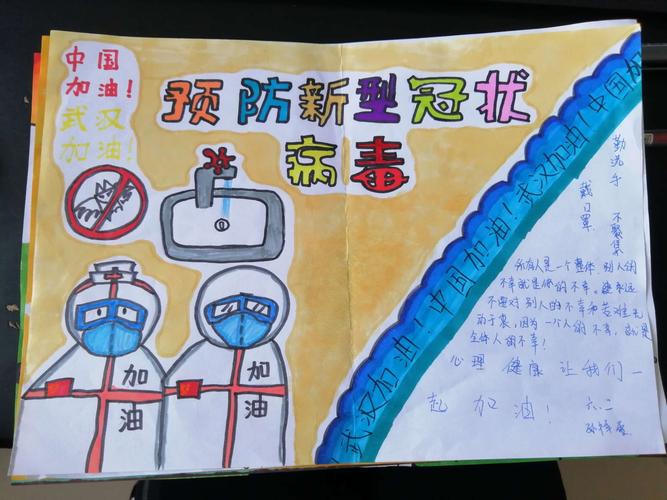 中国
加油！
武汉
加油！
预防新型冠状
病毒
加
油
加
油
武汉加油！中国加油！武汉加油！中国加
勤洗手
戴口罩
不聚集
所有人是一个整体，别人的
不幸就是你的不幸。永远
不要对别人的不幸和苦难无
动于衷，因为一个人的不幸，就是
全体人的不幸！
心理 健康 让我们一
起 加油！
六.二
孙梓